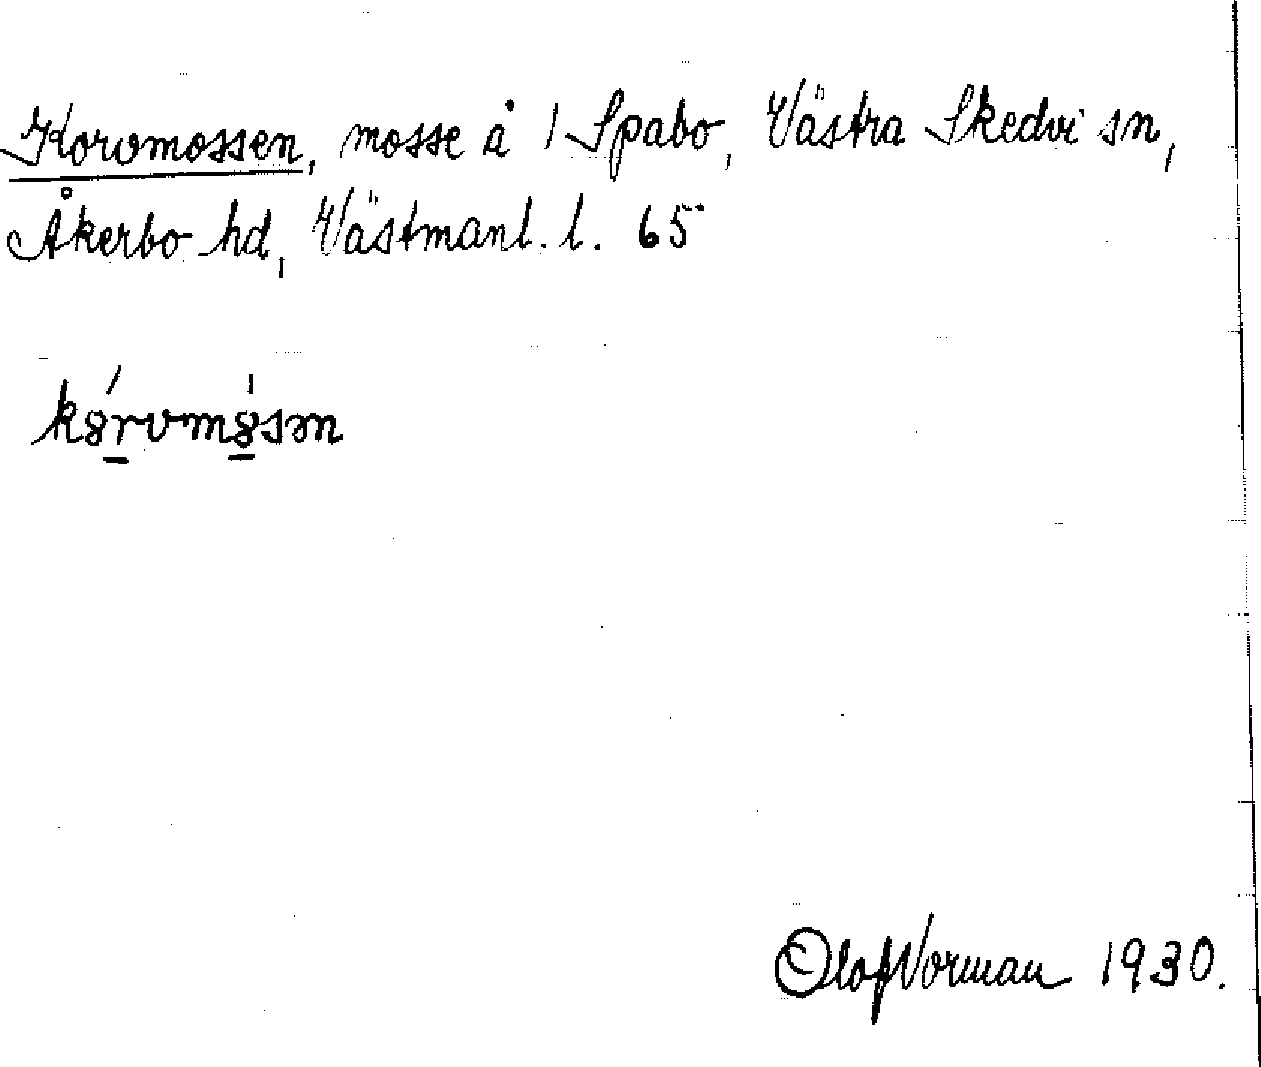 Korvmossen, mosse å 1 Spabo, Västra Skedvi sn,
Åkerbo hd, Västmanl. l. 65
Olof Norman 1930.